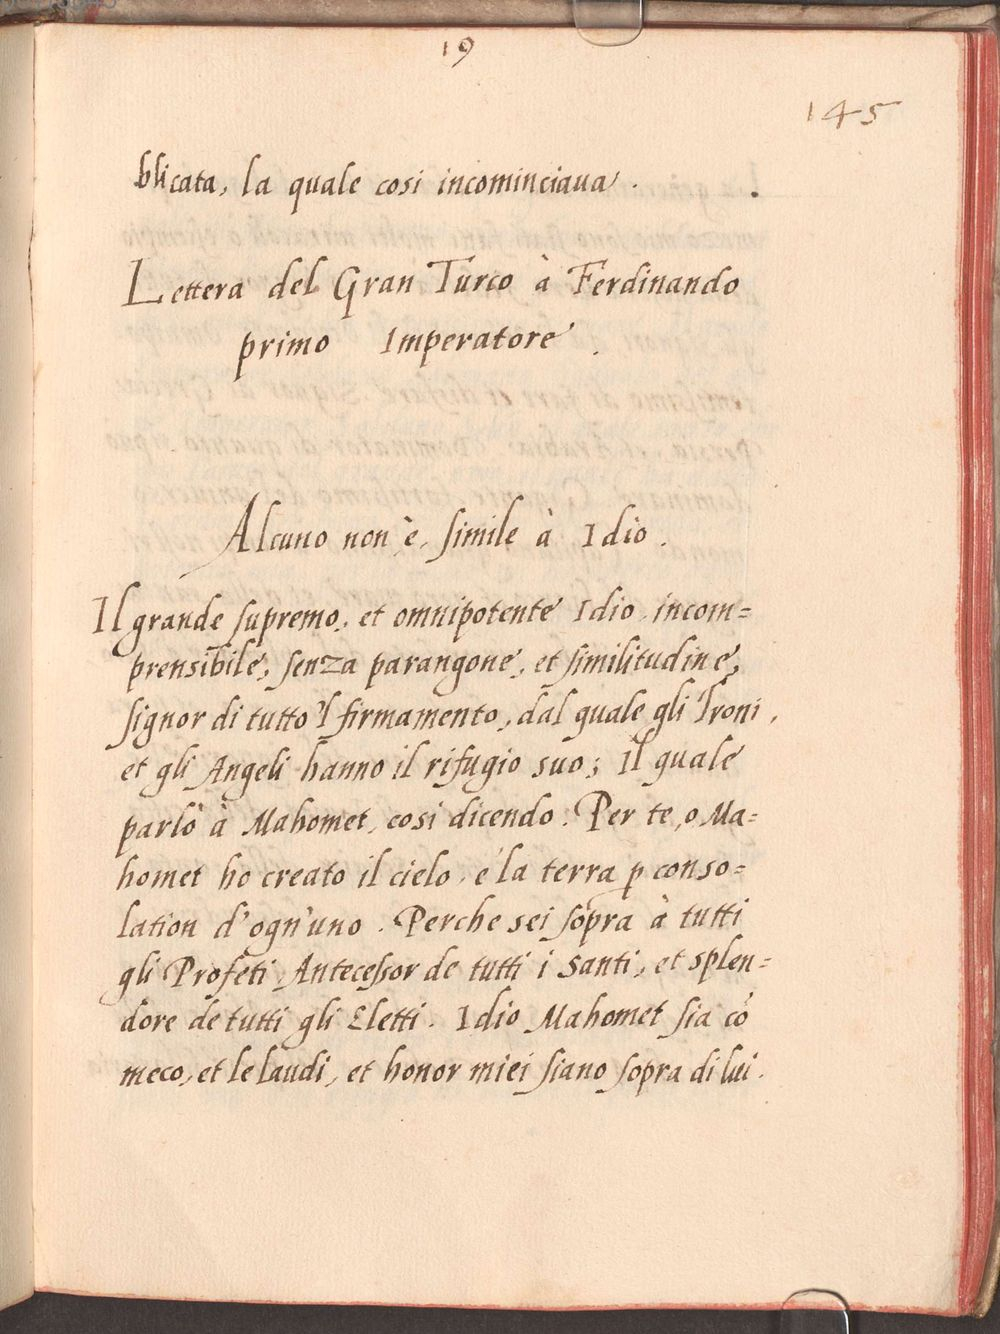 19
145
blicata, la quale cosi incominciaua.
Lettera del Gran Turco à Ferdinando
primo Imperatore.
Alcuno non è, simile à Idio.
Il grande supremo, et omnipotente Idio, incom=
prensibile, senza parangone, et similitudine,
signor di tutto 'l firmamento, dal quale gli Troni,
et gli Angeli hanno il rifugio suo; il quale
parlò à Mahomet, cosi dicendo: Per te, o Ma=
homet ho creato il cielo, e la terra p conso=
lation d'ogn'uno. Perche sei sopra à tutti
gli Profeti, Antecessor de tutti i Santi, et splen=
dore de tutti gli Eletti. Idio Mahomet sia cõ
meco, et le laudi, et honor miei siano sopra di lui.